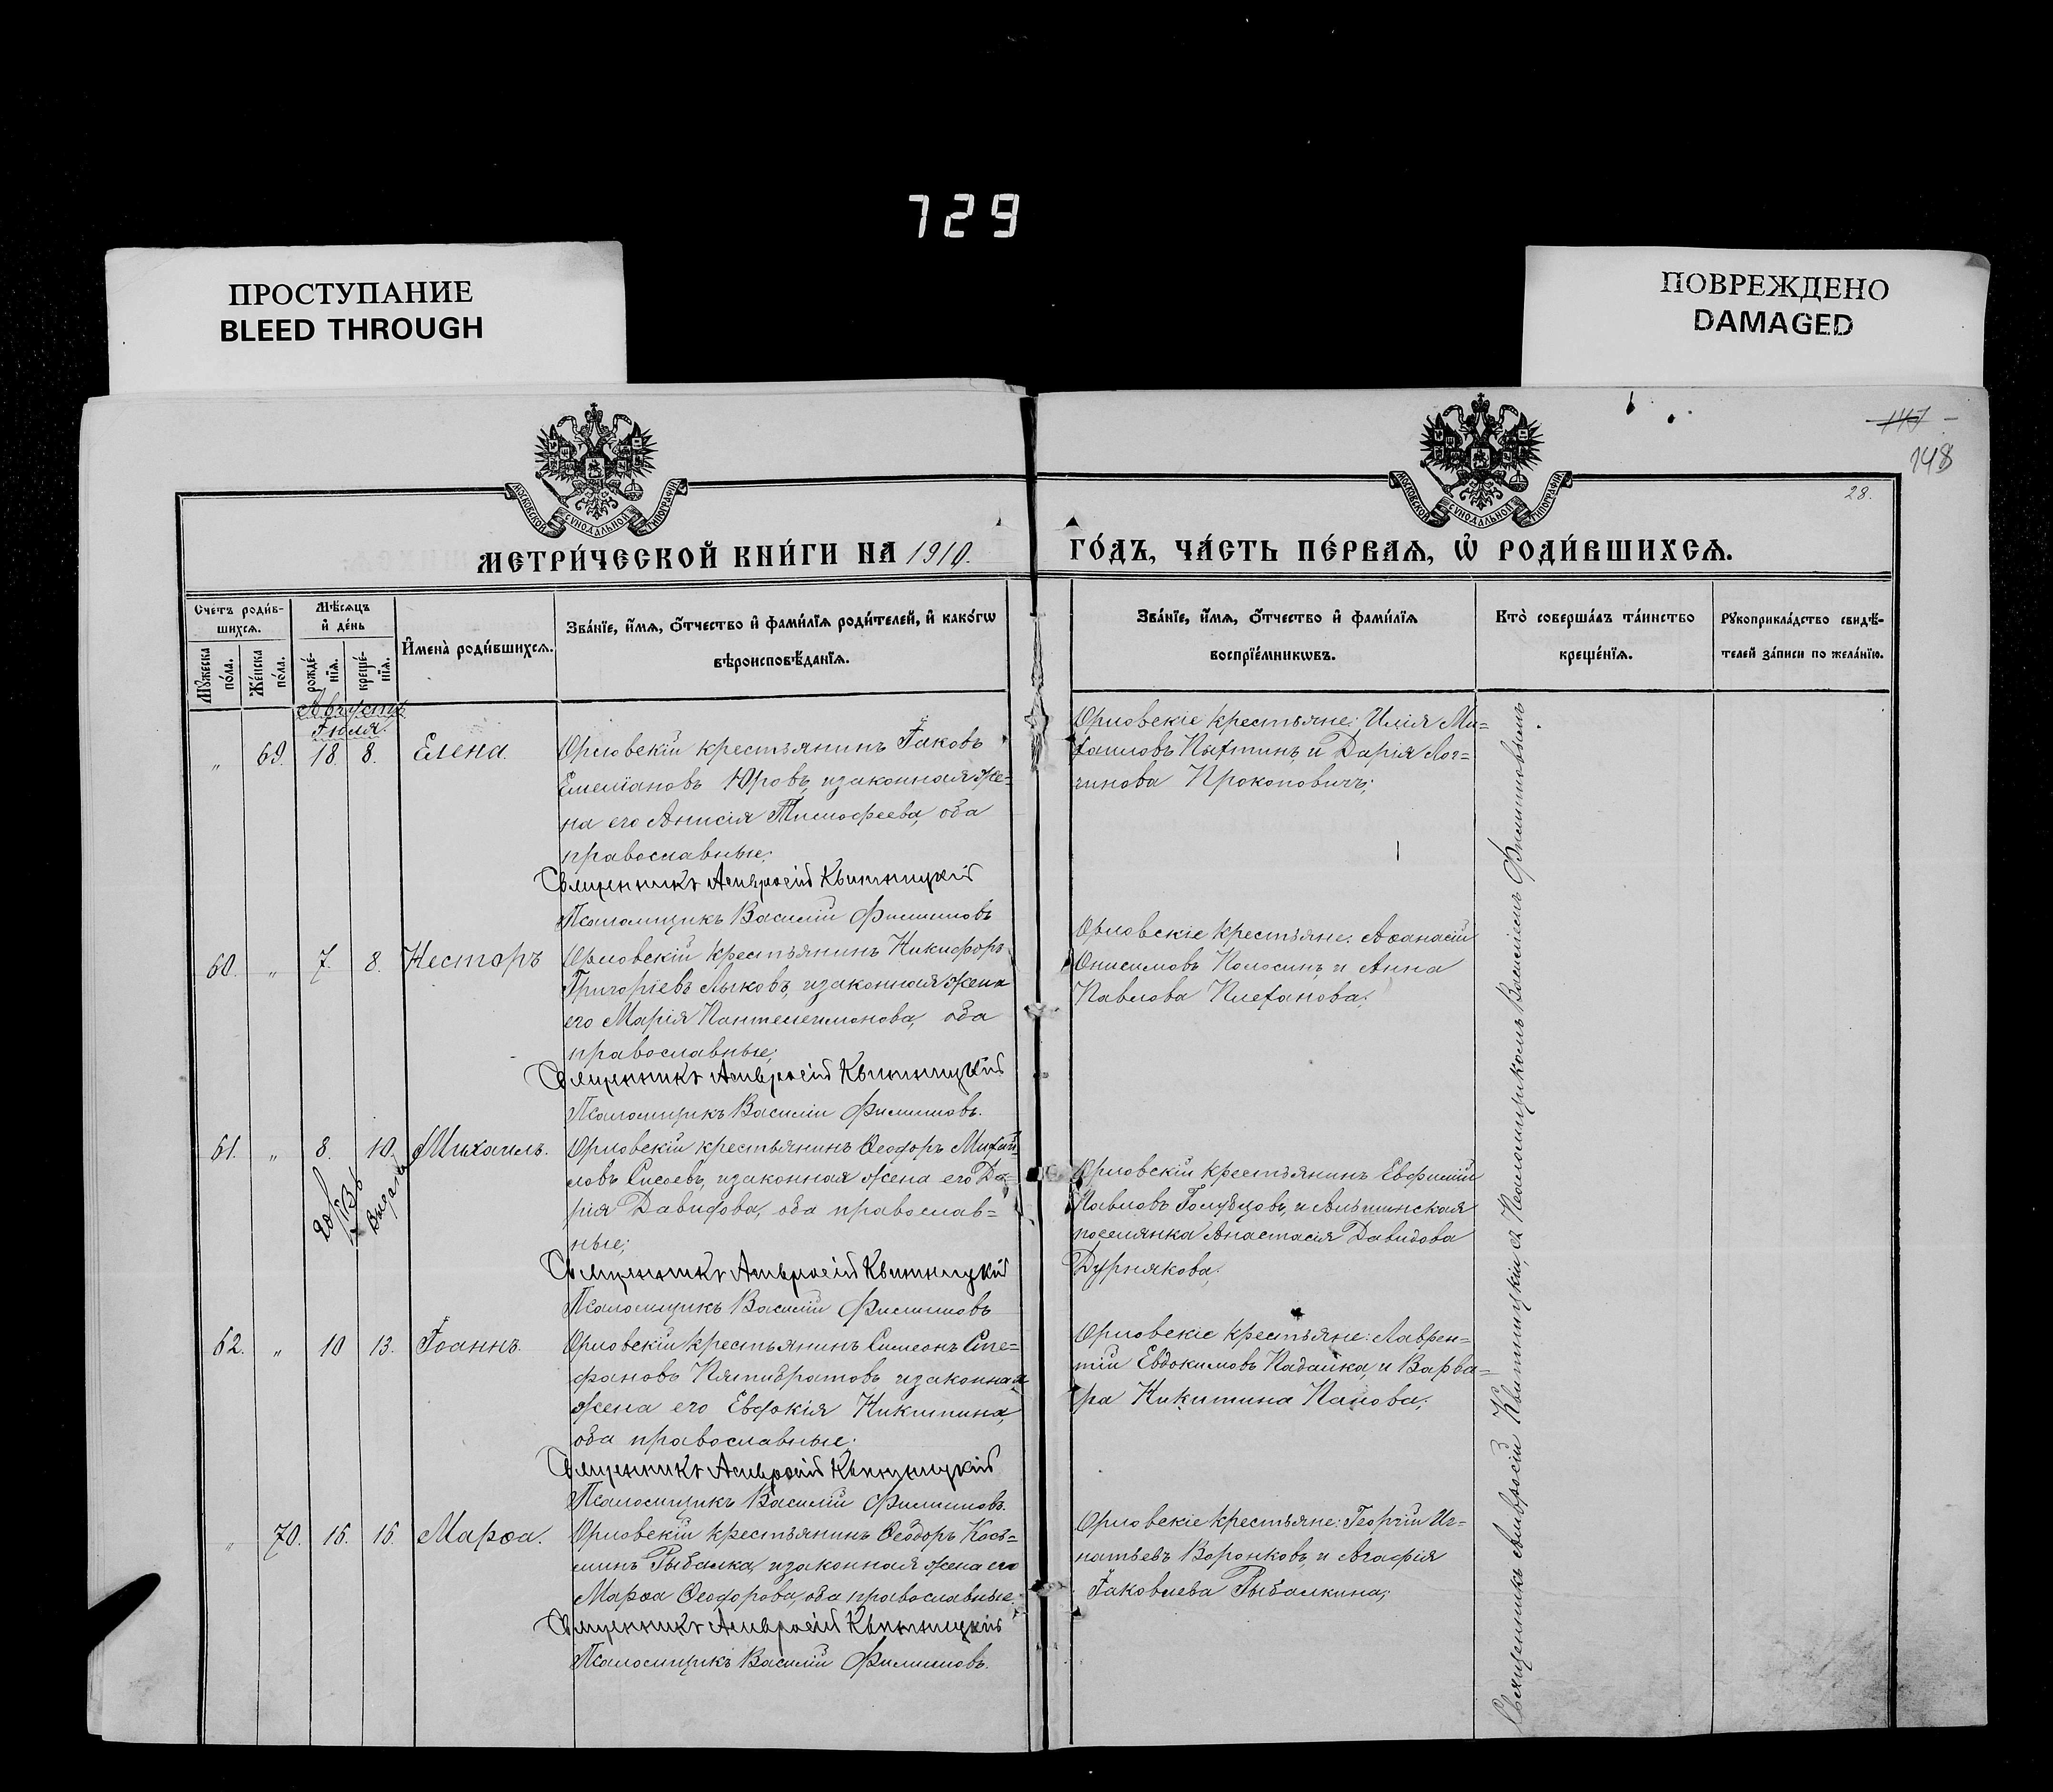 729
ПРОСТУПАНИЕ
BLEED THROUGH
ПОВРЕЖДЕНО
DAMAGED
148
28.
МОСКОВСКОЙ СУНОДАЛЬНОЙ ТИПОГРАФІИ
МОСКОВСКОЙ СУНОДАЛЬНОЙ ТИПОГРАФІИ
МЕТРИ́ЧЕСКОЙ КНИ́ГИ НА 1910.
ГО́ДЪ, ЧА́СТЬ ПЕ́РВАѦ, Ѽ РОДИ́ВШИХСѦ.
Сче́тъ роди́в-
шихсѧ.
Мꙋ́жеска по́ла.
Же́нска по́ла.
Мѣ́сѧцъ
и҆ де́нь
рожде́-
нїѧ.
креще́-
нїѧ.
И҆мена̀ роди́вшихсѧ.
Зва́нїе, и҆́мѧ, ѻ҆́тчество и҆ фами́лїѧ роди́телей, и҆ како́гѡ
вѣроисповѣ́данїѧ.
Зва́нїе, и҆́мѧ, ѻ҆́тчество и҆ фами́лїѧ
воспрїе́мникѡвъ.
Кто̀ соверша́лъ та́инство
креще́нїѧ.
Рꙋкоприкла́дство свидѣ́-
телей за́писи по жела́нїю.
Августъ
Іюля.
„ 69. 18. 8. Елена.
Орловскій крестьянинъ Іаковъ
Емеліановъ Юровъ, и законная же-
на его Анисія Тимофеева, оба
православные;
Священникъ Амвросій Квитницкій
Псаломщикъ Василій Филипповъ
Орловскіе крестьяне: Илія Ми-
хаиловъ Пыхтинъ, и Дарія Лог-
гинова Прокоповичъ;
60. „ 7. 8. Несторъ
Орловскій крестьянинъ Никифоръ
Григоріевъ Лыковъ, и законная жена
его Марія Пантелеимонова, оба
православные;
Священникъ Амвросій Квитницкій
Псаломщикъ Василій Филипповъ.
Орловскіе крестьяне: Аѳанасій
Онисимовъ Колосинъ, и Анна
Павлова Плеханова;
61. „ 8. 10. Михаилъ.
Выдана
Орловскій крестьянинъ Ѳеодоръ Михаи-
ловъ Сисоевъ, и законная жена его Да-
рія Давидова, оба православ-
ные;
Священникъ Амвросій Квитницкій
Псаломщикъ Василій Филипповъ
Орловскій крестьянинъ Евфимій
Павловъ Голубцовъ, и
поселянка Анастасія Давидова
Дурнякова;
62. „ 10 13. Іоаннъ.
Орловскій крестьянинъ Симеонъ Сте-
фановъ Пятибратовъ и законная
жена его Евдокія Никитина,
оба православные;
Священникъ Амвросій Квитницкій
Псаломщикъ Василій Филипповъ.
Орловскіе крестьяне: Лаврен-
тій Евдокимовъ Падалка, и Варва-
ра Никитина Панова;
„ 70. 15. 15. Марѳа.
Орловскій крестьянинъ Ѳеодоръ Кось-
минъ Рыбалка, и законная жена его
Марѳа Ѳеодорова, оба православные;
Священникъ Амвросій Квитницкій
Псаломщикъ Василій Филипповъ.
Орловскіе крестьяне: Георгій Иг-
натьевъ Воронковъ, и Агафія
Іаковлева Рыбалкина;
Священникъ Амвросій Квитницкій, съ Псаломщикомъ Василіемъ Филипповымъ